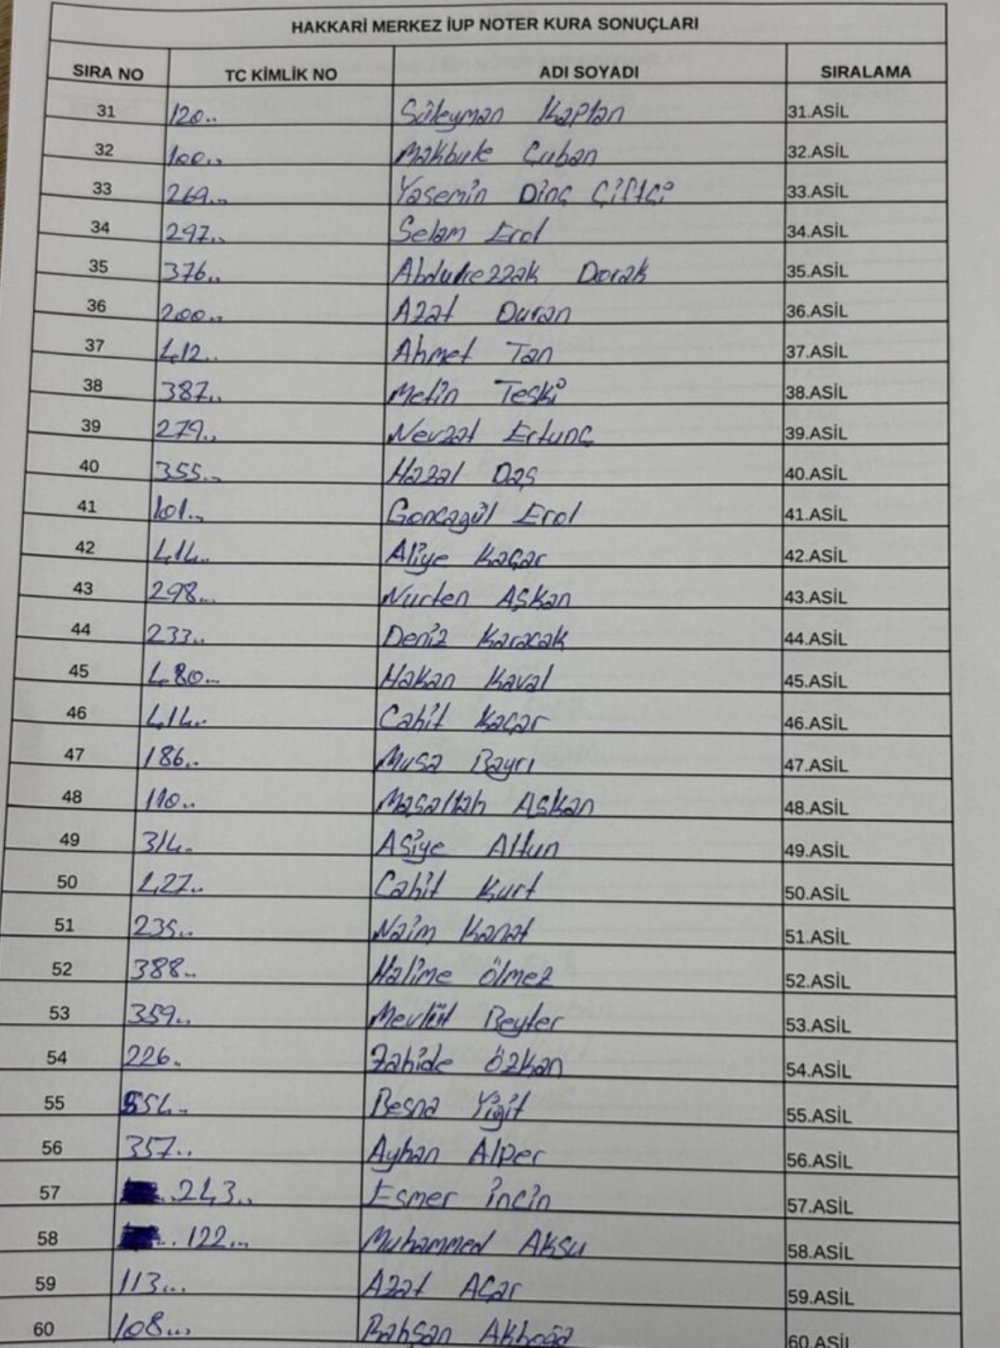 HAKKARİ MERKEZ İUP NOTER KURA SONUÇLARI
SIRA NO TC KİMLİK NO ADI SOYADI SIRALAMA
31 120.. Süleyman Kaplan 31.ASİL
32 100.. Makbule Çuban 32.ASİL
33 269... Yasemin Dinç Çiftçi 33.ASİL
34 297.. Selam Erol 34.ASİL
35 376.. Abdulrezzak Dorak 35.ASİL
36 200.. Azat Duran 36.ASİL
37 412.. Ahmet Tan 37.ASİL
38 387.. Metin Teski 38.ASİL
39 279.. Nevzat Ertunç 39.ASİL
40 355.. Hazal Daş 40.ASİL
41 101.. Goncagül Erol 41.ASİL
42 414.. Aliye Kaçar 42.ASİL
43 298... Nurten Aşkan 43.ASİL
44 233.. Deniz Karacak 44.ASİL
45 480... Hakan Kaval 45.ASİL
46 414.. Cahit Kaçar 46.ASİL
47 186.. Musa Bayrı 47.ASİL
48 110.. Maşallah Aşkan 48.ASİL
49 314. Asiye Altun 49.ASİL
50 427.. Cahit Kurt 50.ASİL
51 235.. Naim Kanat 51.ASİL
52 388.. Halime Ölmez 52.ASİL
53 359.. Mevlüt Beyter 53.ASİL
54 226. Zahide Özkan 54.ASİL
55 554.. Besna Yiğit 55.ASİL
56 357.. Ayhan Alper 56.ASİL
57 .243.. Esmer İncin 57.ASİL
58 .. 122... Muhammed Aksu 58.ASİL
59 113... Azat Acar 59.ASİL
60 108... Bahşan Akboğa 60.ASİL